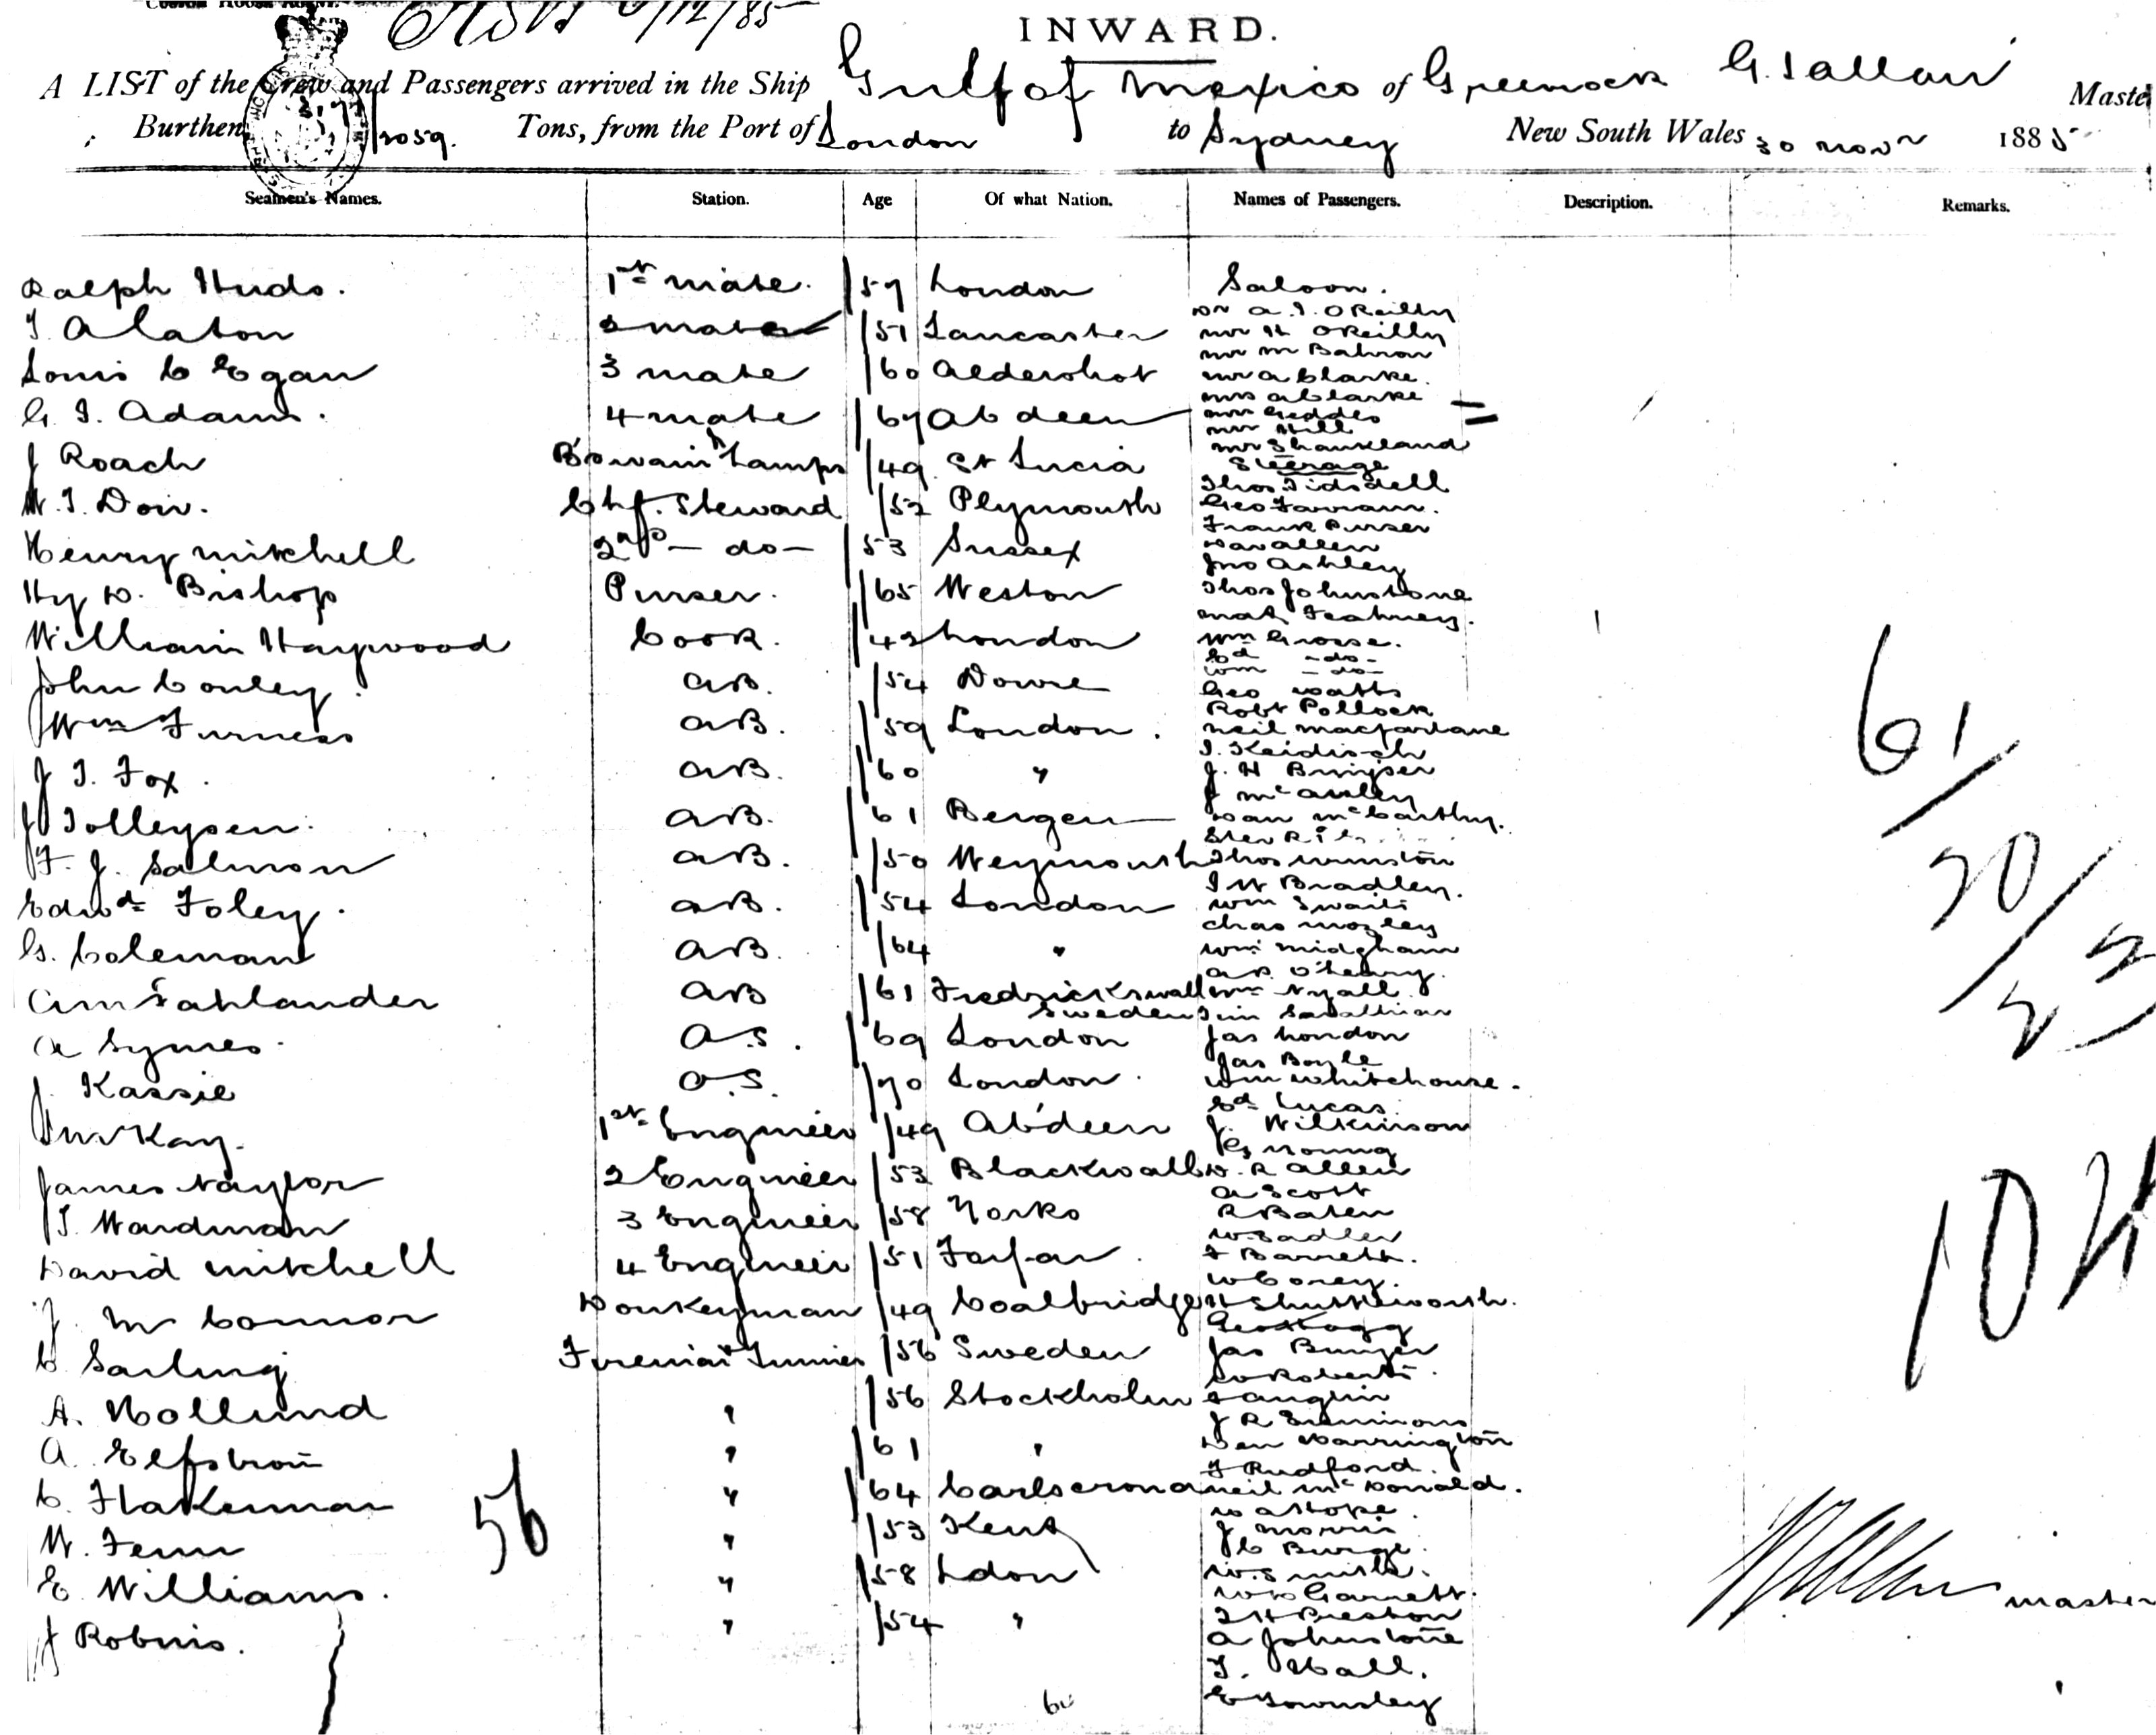 INWARD.
A LIST of the Crew and Passengers arrived in the Ship Gulf of Mexico of Greenock G. Sallau Master
Burthen 2059 Tons, from the Port of London to Sydney New South Wales 30 Novr 1885
Seamen's Names. Station. Age Of what Nation. Names of Passengers. Description. Remarks.
Ralph Hudo. 1st mate. /57 London
Saloon.
T Alaton 2 mate /51 Lancaster
Dr A. J. OReilly
Mr H OReilly
Louis C Egan 3 mate /60 Aldershot
Mr A Clarke.
Mrs A Clarke
G. I. Adams. 4 mate /67 Abdeen
Mr Geddes
Mr Hill
Mr Shankland
J Roach Boswain Lamps /49 St Lucia
Steerage
Thos Tidsdell
W. T. Dow. Chf. Steward /52 Plymouth
Geo Farram.
Frank Purser
Henry Mitchell 2nd - do - /53 Sussex
Dav Allen
Jno Ashley
Hy D. Bishop Purser. /65 Weston
Thos Johnstone
Mat Feahney.
William Haywood Cook. /42 London
Wm Grosse.
Ed - do -
Wm - do -
John Conley. AB. /54
Geo Watts
Robt Pollock
Wm Furness AB. /59 London.
Neil Macfarlane
J. I. Fox. AB. /60 "
J. H
J Tolleysen. AB. /61 Bergen
J McAuley
Dan McCarthy.
F. J. Salmon AB. /50 Weymouth
Thos Winston
J W Bradley.
Edwd Foley. AB. /54 London
Wm Swaits
Chas Mozley
G. Coleman AB. /64 "
Wm Midgham
Fahlander AB /61 Fredrickswall Sweden
Wm Nyall
A Symes. A.S. /69 London
Jas London
Jas Boyle
J. Kassie O.S. /70 London.
Wm Whitehouse.
Ed Lucas.
McKay. 1st Engineer /49 Abdeen
J. Wilkinson
Young
James Naylor 2 Engineer /53 Blackwall
W. R Allen
A Scott
T. Wardman 3 Engineer /58 Yorks
R Baten
W Sadler
David Mitchell 4 Engineer /51 Forfar.
F Barrett.
W Corey.
J. Mc Connor Donkeyman /49 Coalbridge
H Shuttleworth.
Geo Hogg
C Sarling Fireman Trimmer /56 Sweden
Jas Bunyer
W Roberts.
A. Hollund " /56 Stockholm
J R Simmons
A. Elfstrom " /61 "
Den Harrington
F Rudford.
C. Flakerman " /64 Carlscrona
Neil McDonald.
W A Hope
W. Fenn 56 " /53 Kent
J Morris
J C Burge.
E Williams. " /58 Ldon
W. Smith.
W D Garnett.
J Robins. " /54 "
T H Preston
A Johnstone
T. Hall.
E Townsley
61/
70/
104
master